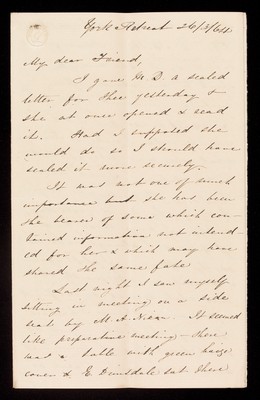 York Retreat 26/3/64.
My dear Friend,
I gave H. D. a sealed
letter for thee yesterday &
she at once opened & read
it. Had I supposed she
would do so I should have
sealed it more securely.
It was not one of much
importance but she has been
the bearer of some which con-
tained information not intend-
ed for her & which may have
shared the same fate
Last night I saw myself
sitting in meeting on a side
seat by M. A.
It seemed
like preparative meeting - there
was a table with green baize
cover & E. Dimsdale sat there